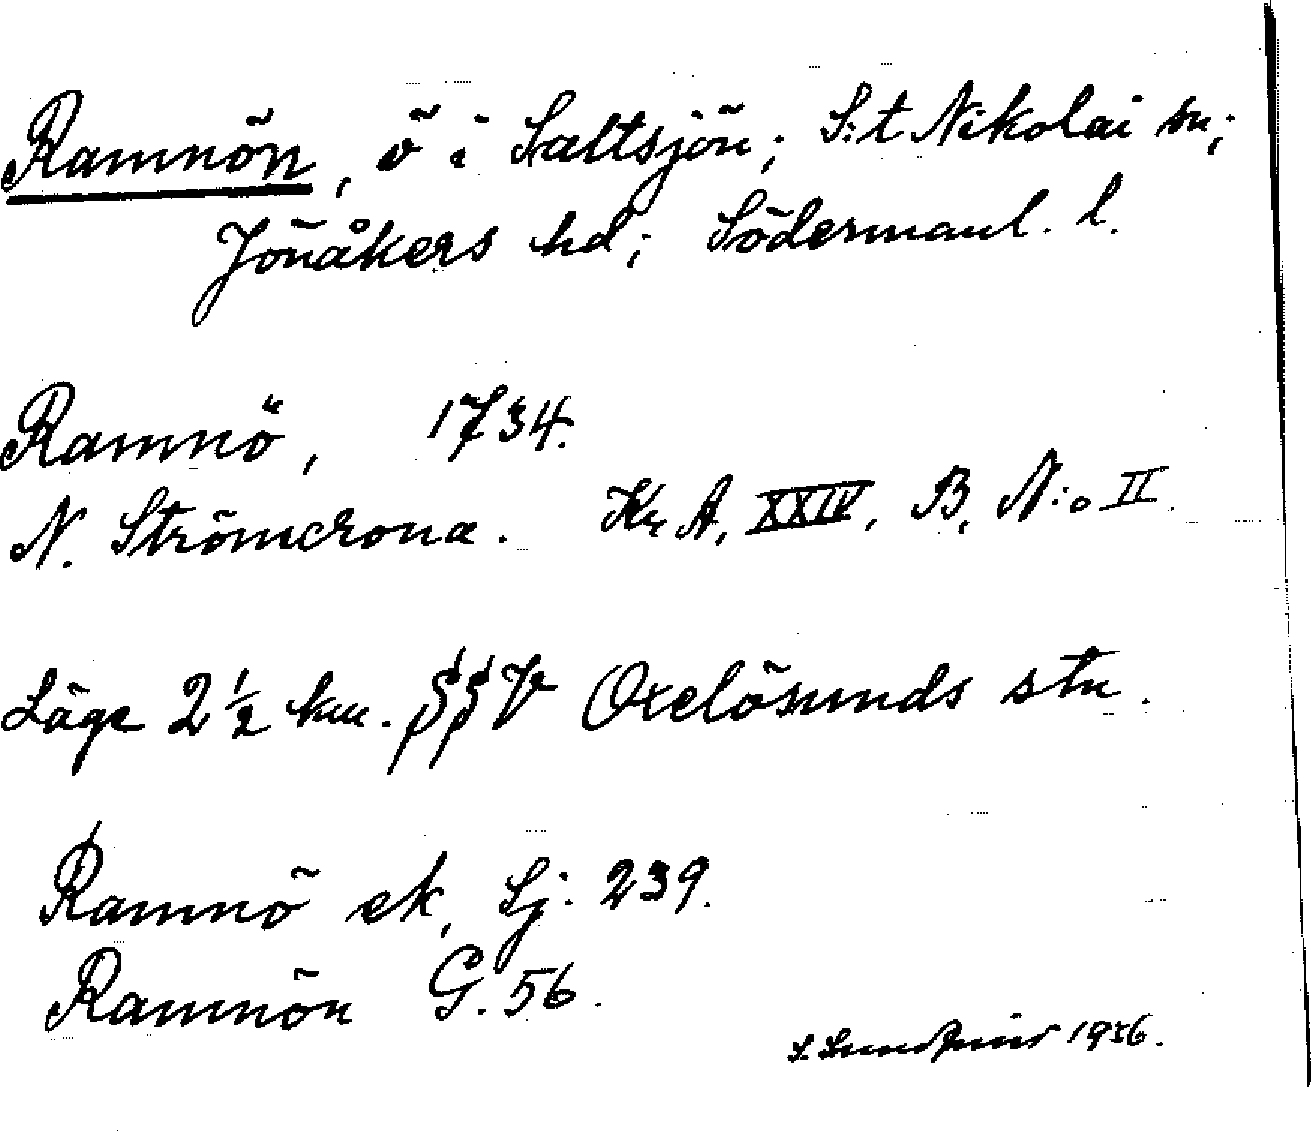 Ramnön, ö i Saltsjön; S:t Nikolai sn;
Jönåkers hd; Södermanl. l.
Ramnö, 1734.
N. Strömcrona. Kr A, XXIV, B, N:o II.
Läge 2 1/2 km. SSV Oxelösunds stn.
Ramnö ek, Sj. 239.
Ramnön G. 56.
S. 1956.